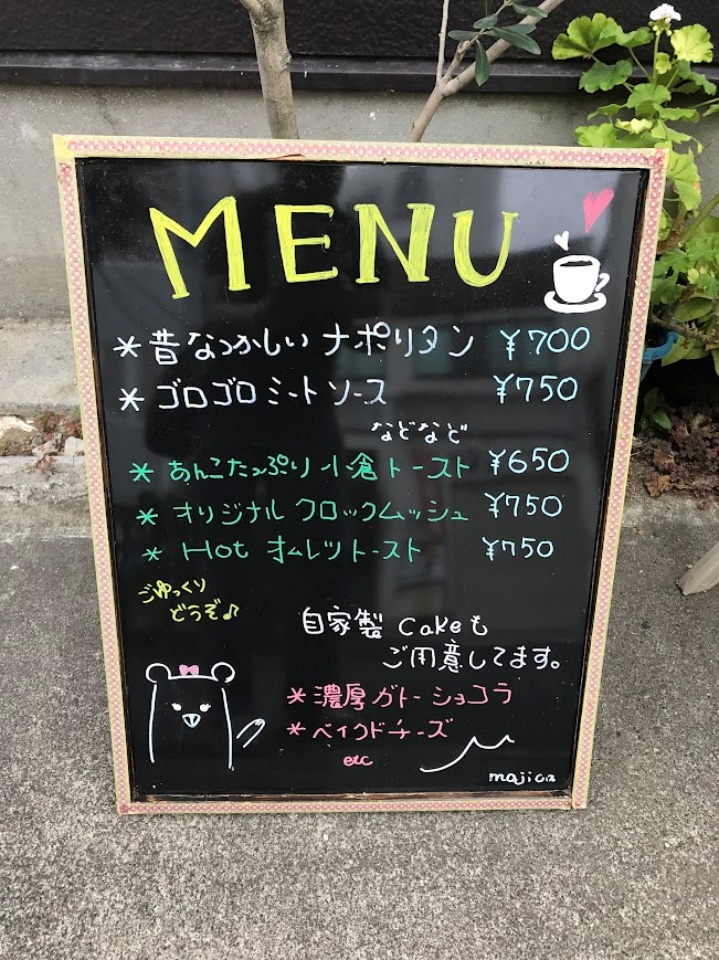 MENU
* 昔なつかしい ナポリタン ¥700
* ゴロゴロ ミートソース ¥750
などなど
* あんこたっぷり 小倉トースト ¥650
* オリジナル クロックムッシュ ¥750
* Hot オムレツトースト ¥750
ごゆっくり
どうぞ♪
自家製 cakeも
ご用意してます。
* 濃厚ガトーショコラ
* ベイクドチーズ
etc
majica